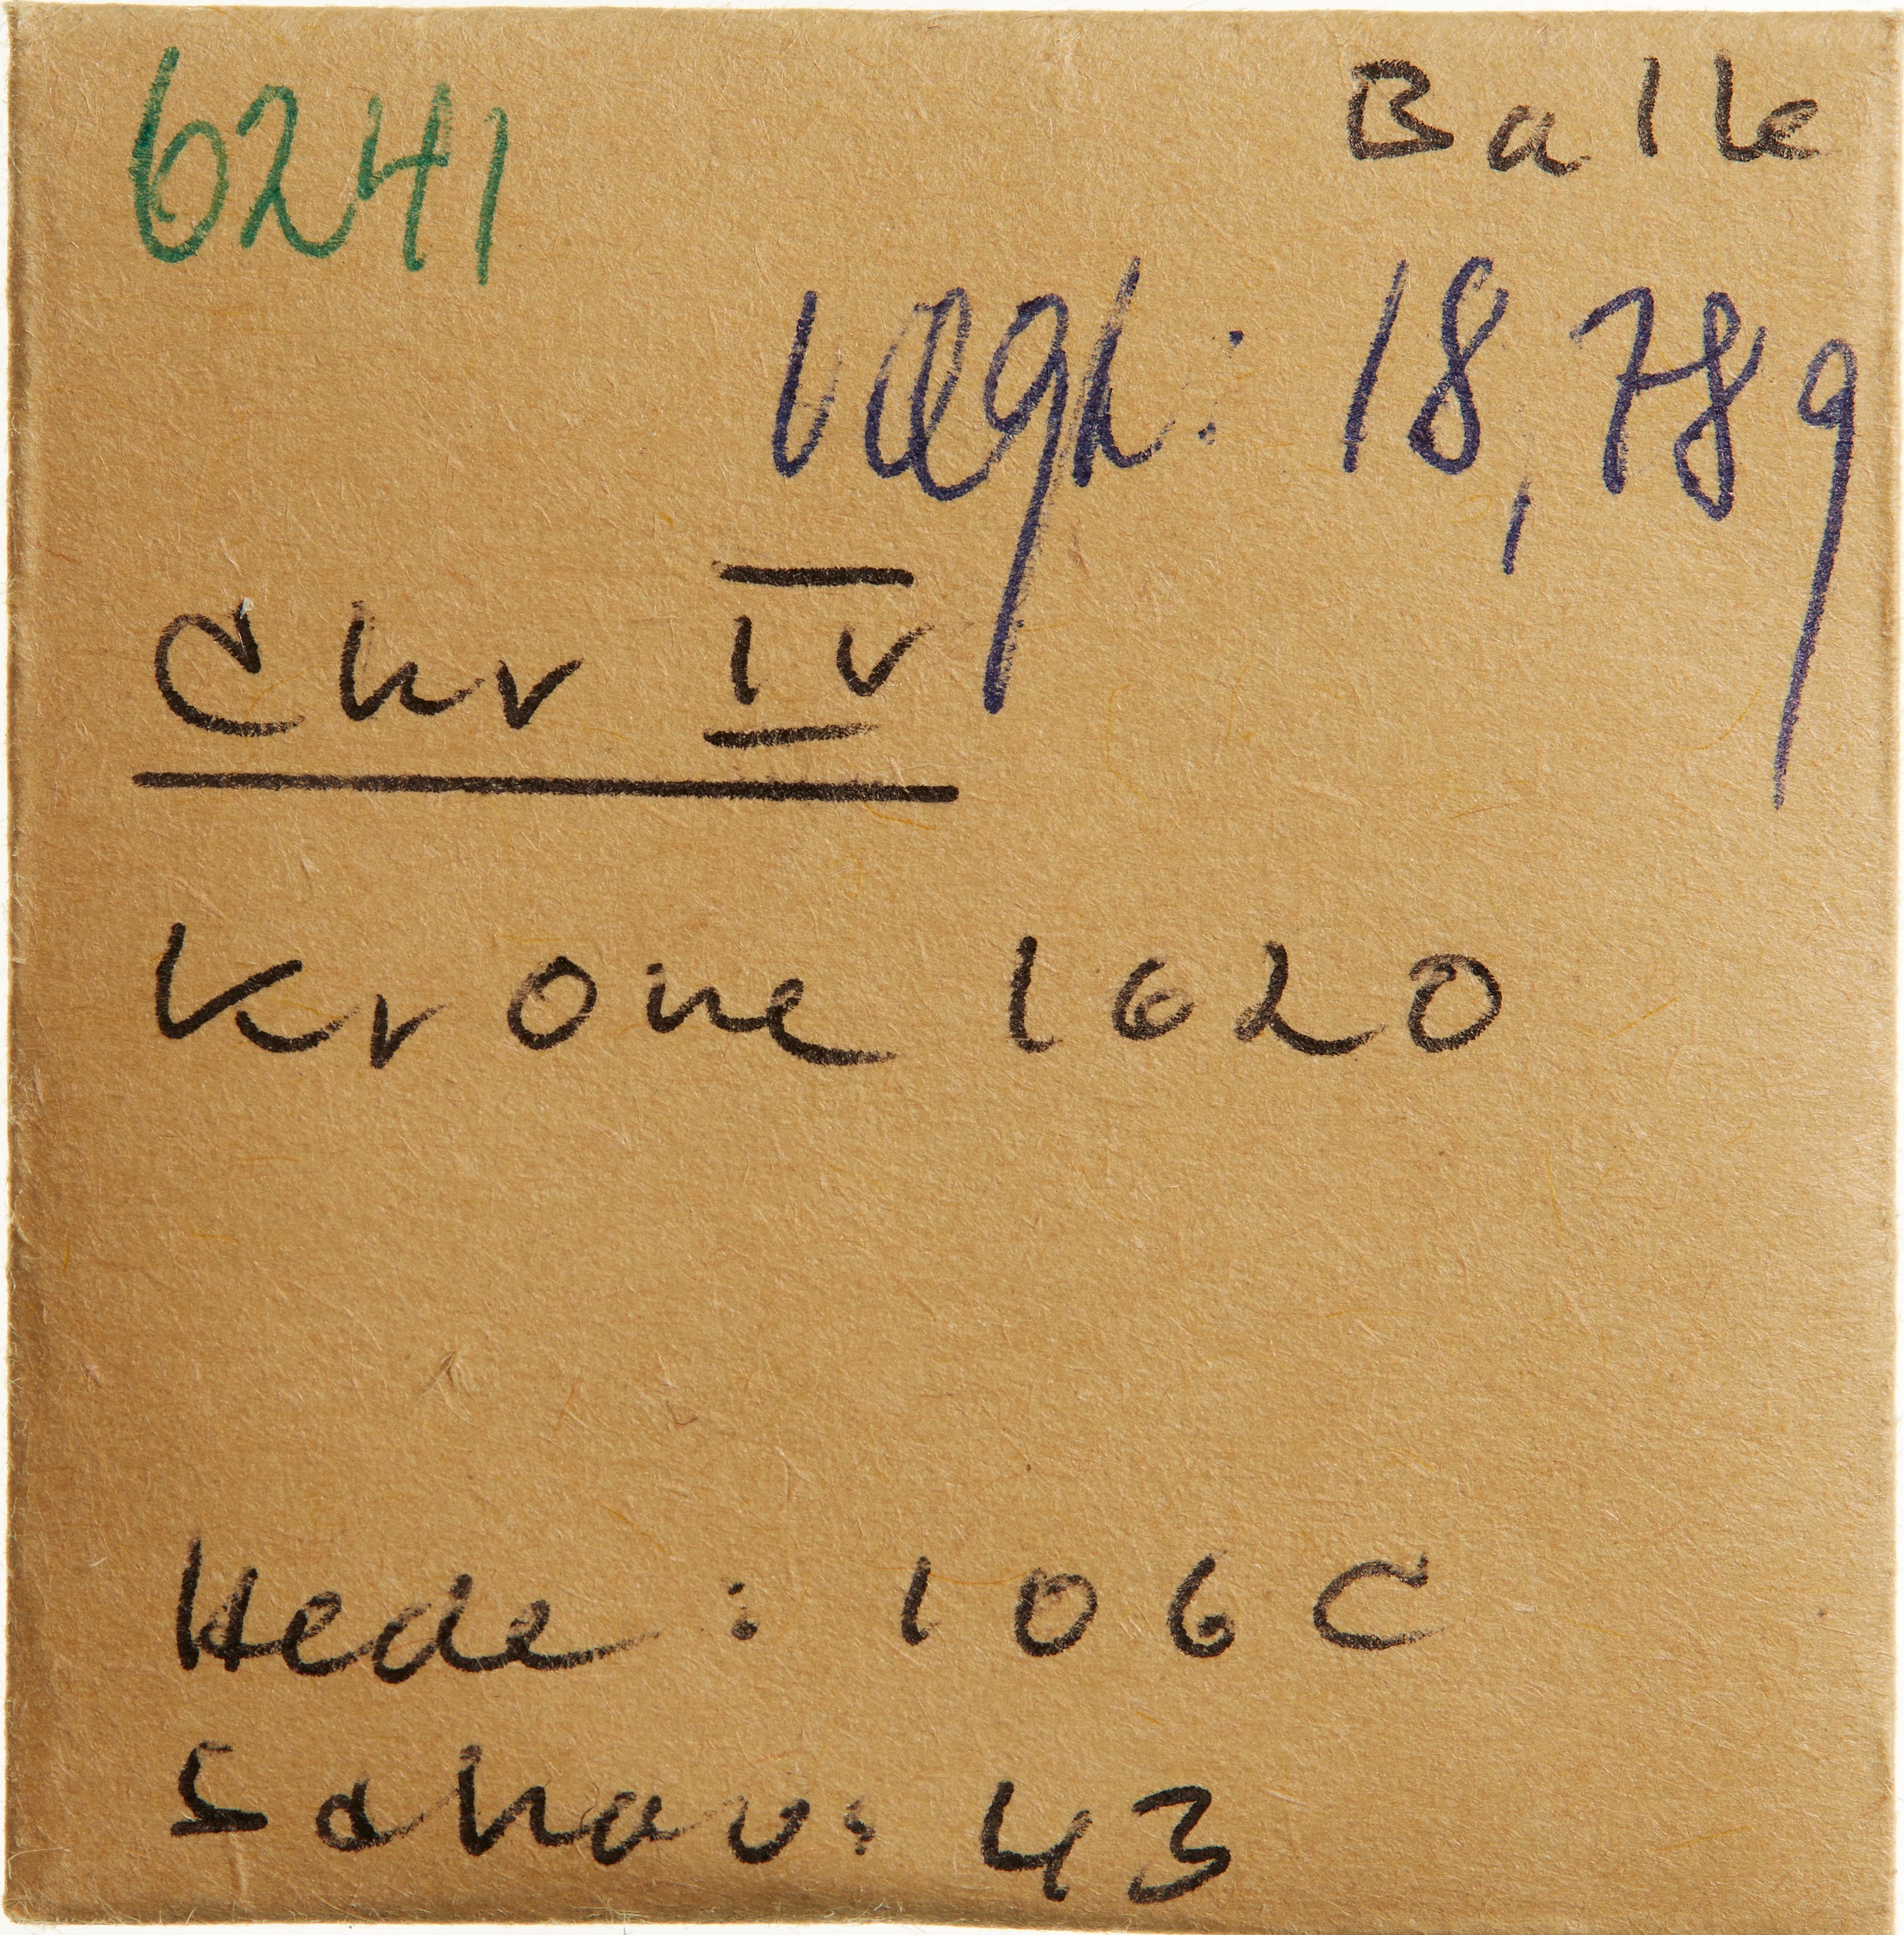 6241
Balk
vægt: 18,78g
Chr IV
Krone 1620
Hede: 106C
Schou: 43